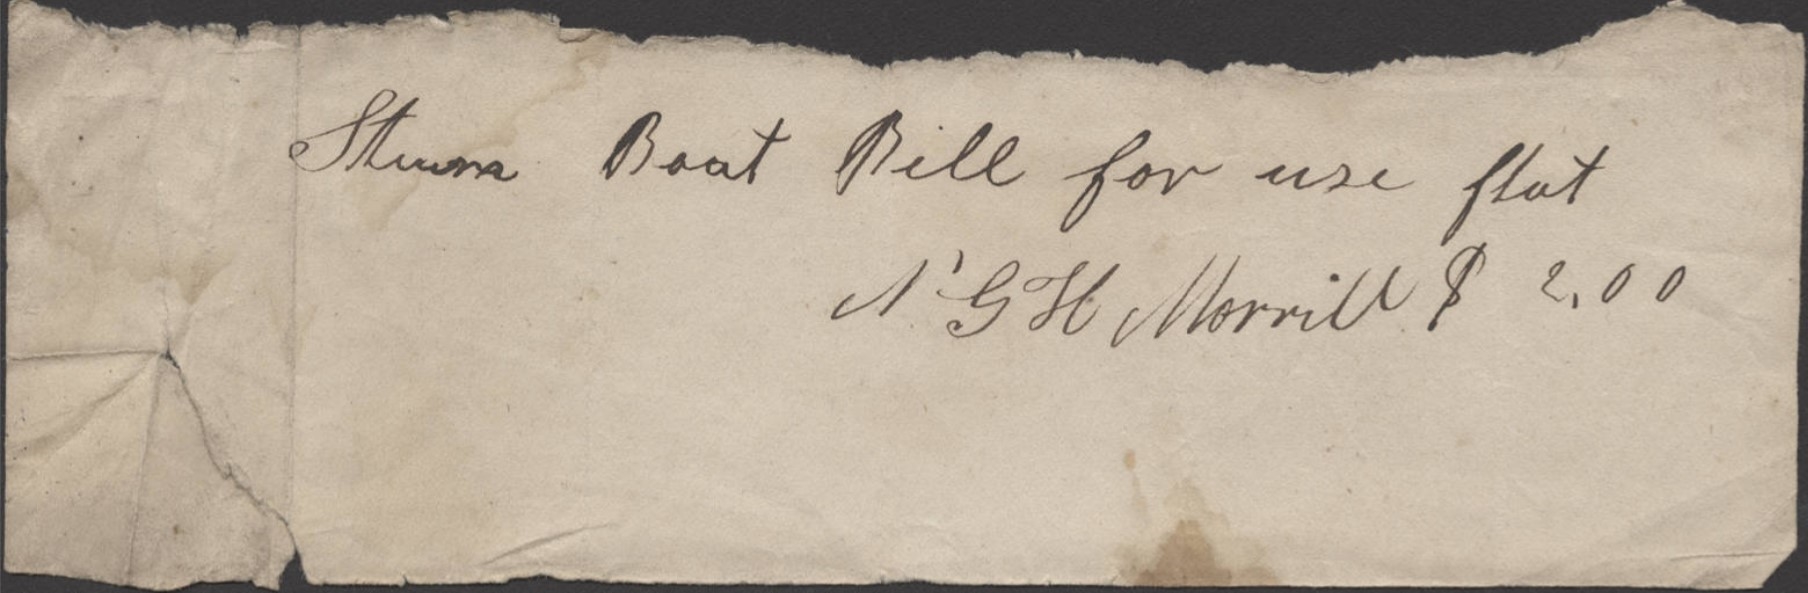 Steam Boat Bill for use flat
N' G H Morrill $ 2,00